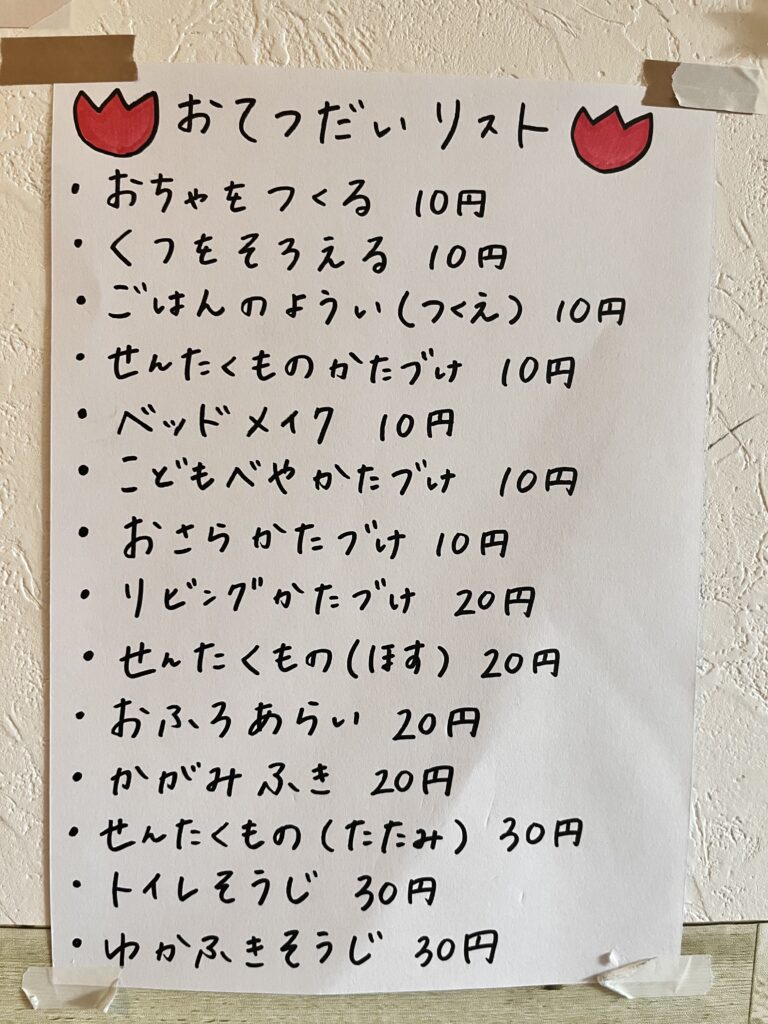 おてつだいリスト
・おちゃをつくる 10円
・くつをそろえる 10円
・ごはんのようい(つくえ) 10円
・せんたくものかたづけ 10円
・ベッドメイク 10円
・こどもべやかたづけ 10円
・おさらかたづけ 10円
・リビングかたづけ 20円
・せんたくもの(ほす) 20円
・おふろあらい 20円
・かがみふき 20円
・せんたくもの(たたみ) 30円
・トイレそうじ 30円
・ゆかふきそうじ 30円